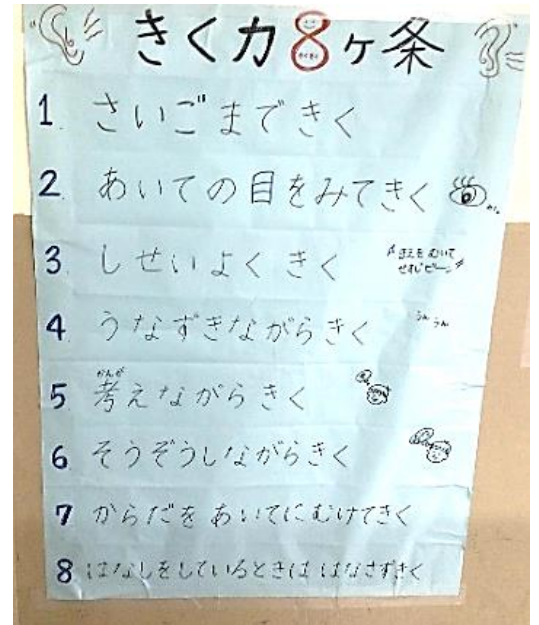 きく力8ヶ条
1 さいごまできく
2 あいての目をみてきく
3 しせいよく きく
まえを むいて
せすじピーン
4 うなずきながらきく
うん うん
5 考えながらきく
かんが
6 そうぞうしながらきく
7 からだを あいてにむけてきく
8 はなしをしているときは はなさずきく